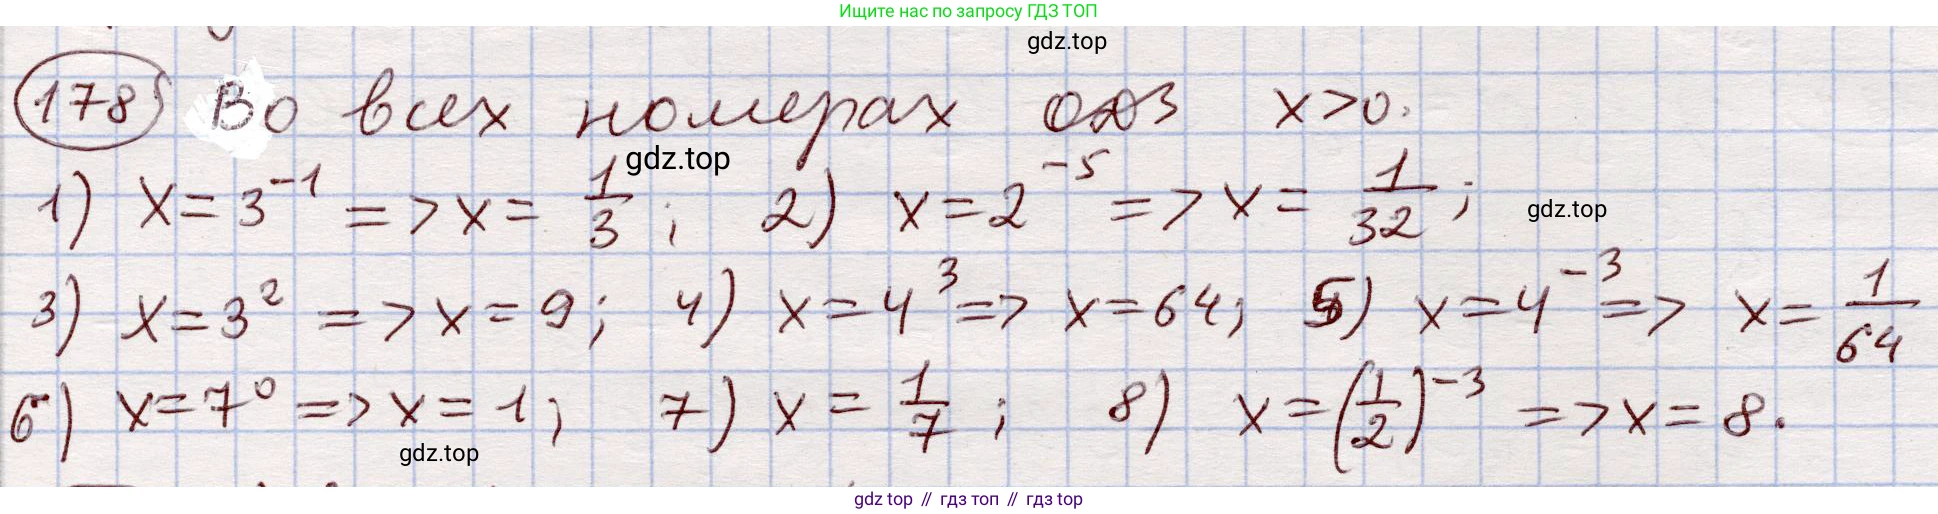 Ищите нас по запросу ГДЗ ТОП
gdz.top
178 Во всех номерах одз x>0.
gdz.top
1) x=3⁻¹ => x= 1/3 ; 2) x=2⁻⁵ => x= 1/32 ;
gdz.top
3) x=3² => x=9; 4) x=4³ => x=64; 5) x=4⁻³ => x= 1/64
6) x=7⁰ => x=1; 7) x= 1/7 ; 8) x=(1/2)⁻³ => x=8.
gdz.top
gdz top // гдз топ // гдз top